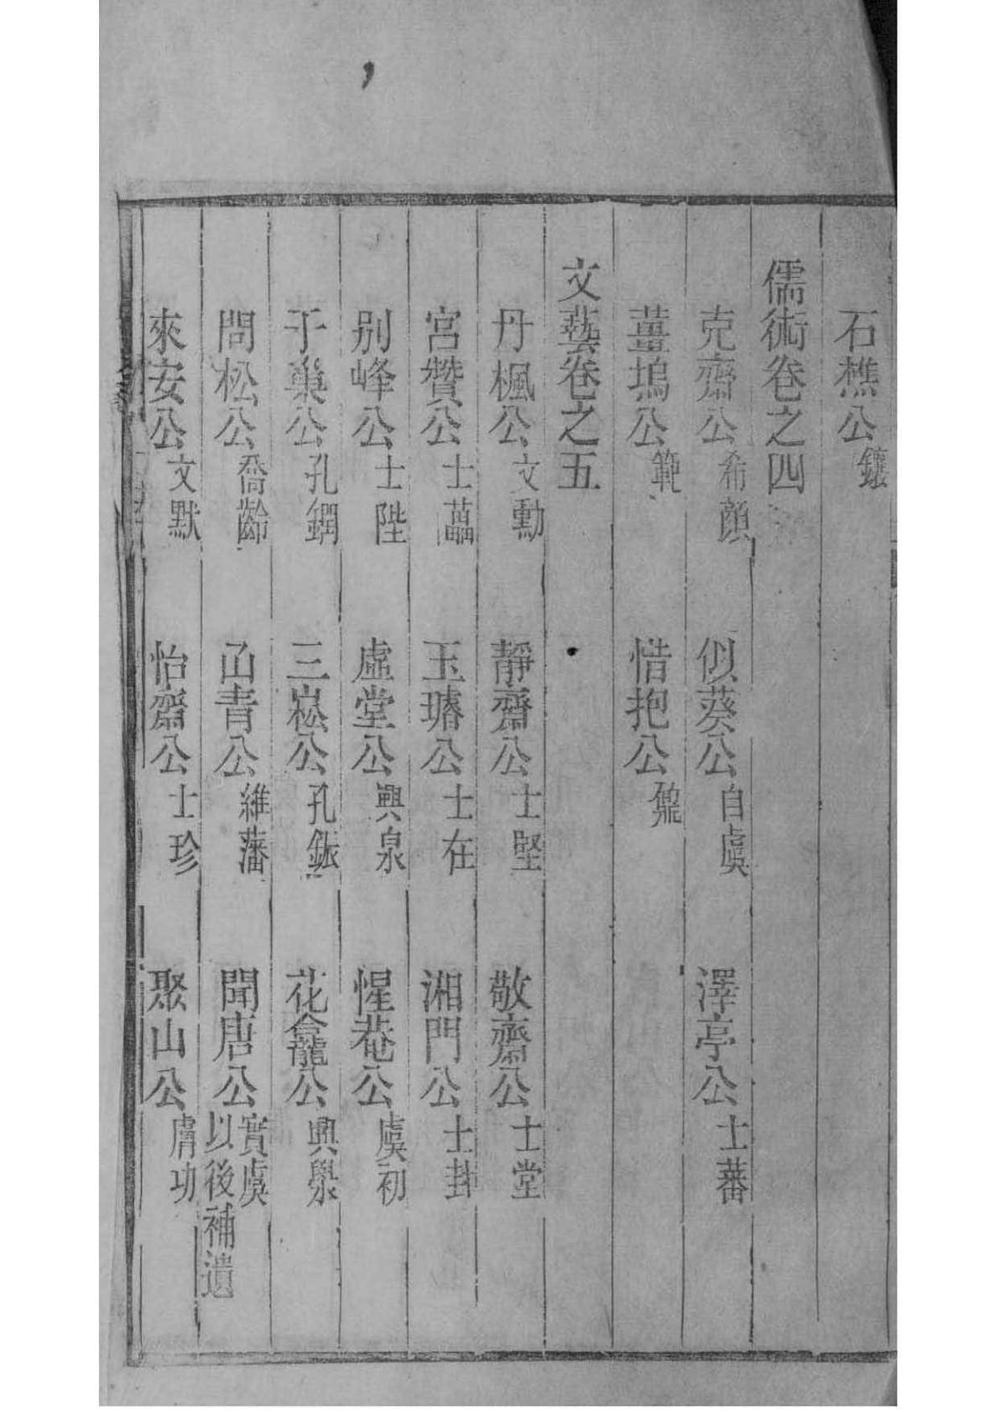 石樵公鑲
儒術卷之四
克齋公希顏 似葵公自虞 澤亭公士蕃
薑塢公範 惜抱公鼐
文藝卷之五
丹楓公文勳 靜齋公士堅 敬齋公士堂
宮贊公士藟 玉璿公士在 湘門公士封
别峰公士陛 虛堂公興泉 惺菴公虞初
于巢公孔鐧 三崧公孔鋠 花龕公興㶅
問松公喬齡 函青公維藩 聞唐公實虞以後補遺
來安公文默 怡齋公士珍 聚山公膚功